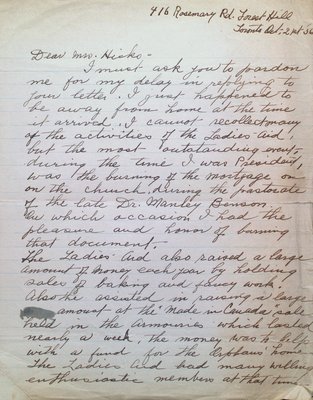 416 Rosemary Rd. Forest Hill
Toronto Oct. 2nd 56
Dear Mrs. Hicks -
I must ask you to pardon
me for my delay in replying to
your letter. I just happened to
be away from home at the time
it arrived. I cannot recollect many
of the activities of the Ladies Aid,
but the most outstanding event,
during the time I was President,
was the burning of the mortgage on
on the church, during the pastorate
of the late Dr. Manley Benson
on which occasion I had the
pleasure and honor of burning
that document.
The Ladies Aid also raised a large
amount of money each year by holding
sales of baking and fancy work.
Also we assisted in raising a large
amount at the "made in Canada sale
held in the Armouries which lasted
nearly a week, the money was to help
with a fund for the Orphans' home
The Ladies Aid had many willing
enthusiastic members at that time